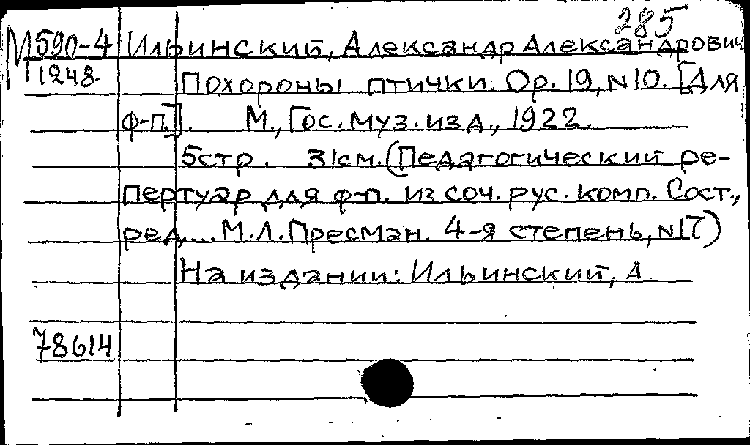 285
М590-4 Ильинский, Александр Александрович
1248
Похороны птички. Ор. 19, №10. [Для
ф-п.]. М., Гос. муз. изд., 1922.
5стр. 31см. (Педагогический ре-
пертуар для ф-п. из соч. рус. комп. Сост.,
ред.... М.Л.Пресман. 4-я степень, №17)
На издании: Ильинский, А.
78614